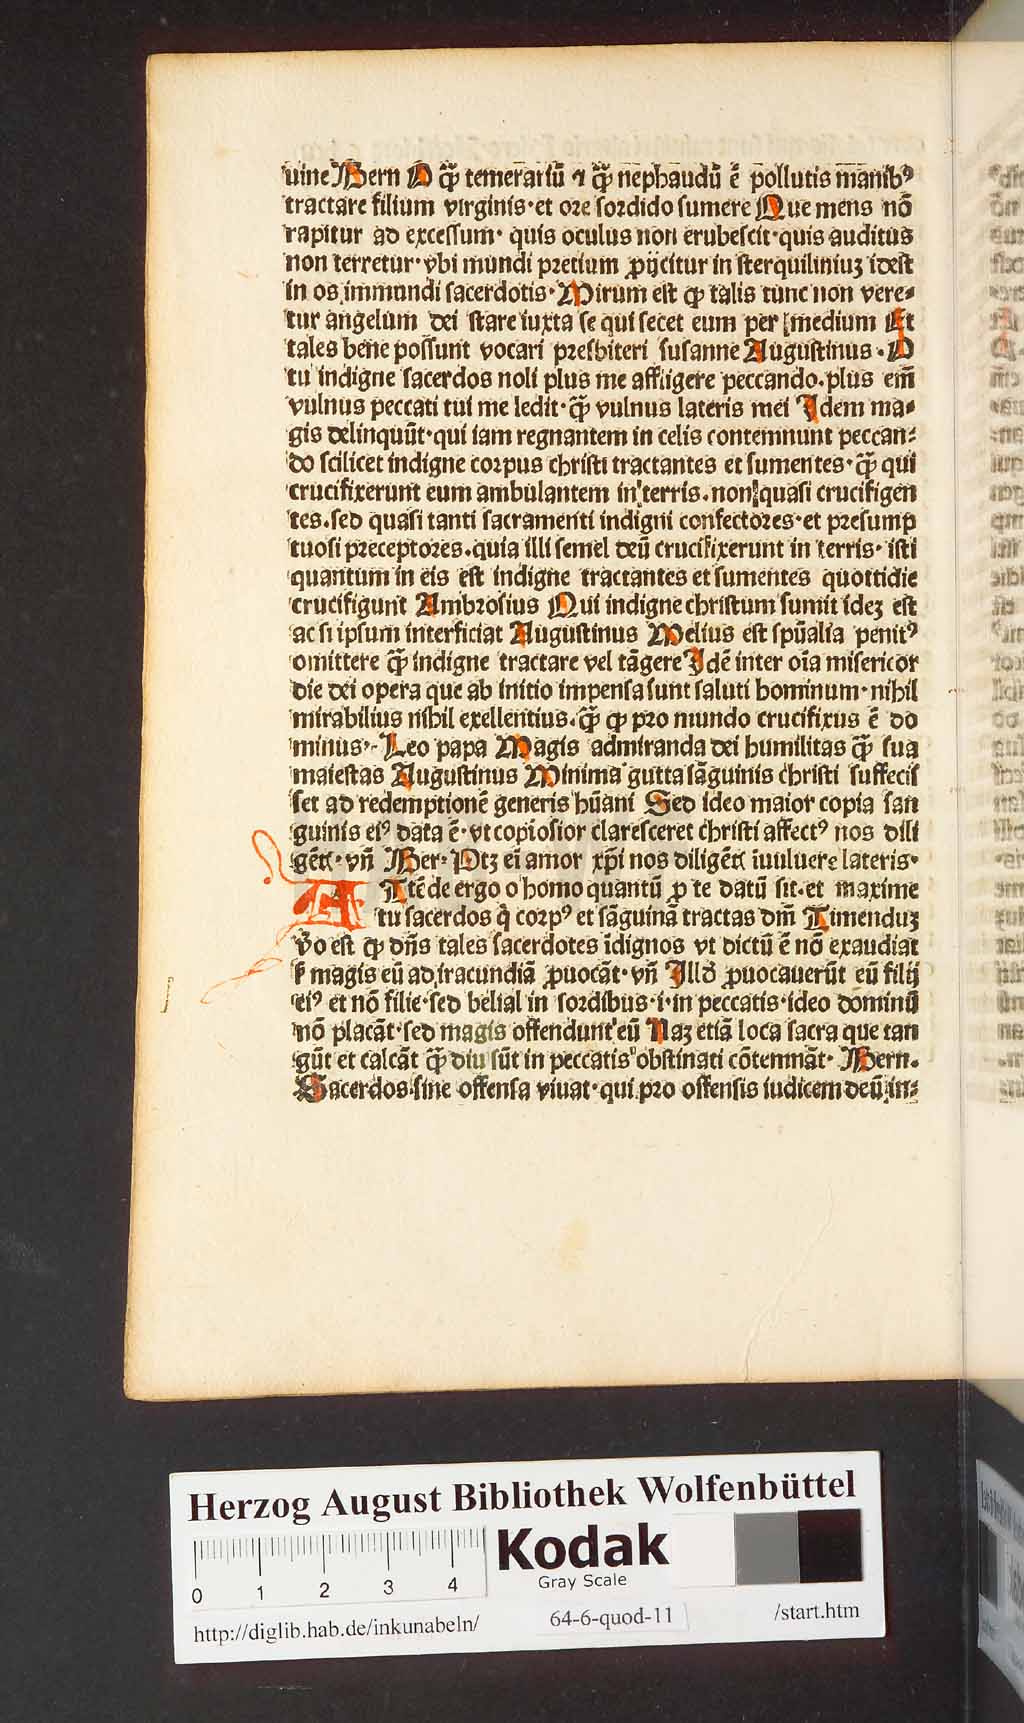 uine Bern O q̄ꝫ temerariū ⁊ q̄ꝫ nephaudū ē pollutis manibꝰ
tractare filium virginis·et ore sordido sumere Que mens nō
rapitur ad excessum· quis oculus non erubescit·quis auditus
non terretur·vbi mundi pretium ꝓijcitur in sterquiliniuꝫ idest
in os immundi sacerdotis·Mirum est ꝙ talis tunc non vere⸗
tur angelum dei stare iuxta se qui secet eum per medium Et
tales bene possunt vocari presbiteri susanne Augustinus·O
tu indigne sacerdos noli plus me affligere peccando·plus em̄
vulnus peccati tui me ledit·q̄ꝫ vulnus lateris mei Idem ma⸗
gis delinquūt·qui iam regnantem in celis contemnunt peccan⸗
do scilicet indigne corpus christi tractantes et sumentes·q̄ꝫ qui
crucifixerunt eum ambulantem in terris·non quasi crucifigen
tes·sed quasi tanti sacramenti indigni confectores·et presump
tuosi preceptores·quia illi semel deū crucifixerunt in terris·isti
quantum in eis est indigne tractantes et sumentes quottidie
crucifigunt Ambrosius Qui indigne christum sumit ideꝫ est
ac si ipsum interficiat Augustinus Melius est spūalia penitꝰ
omittere q̄ꝫ indigne tractare vel tāgere Idē inter oīa misericor
die dei opera que ab initio impensa sunt saluti hominum·nihil
mirabilius nihil exellentius·q̄ꝫ ꝙ pro mundo crucifixus ē do
minus·Leo papa Magis admiranda dei humilitas q̄ꝫ sua
maiestas Augustinus Minima gutta sāguinis christi suffecis
set ad redemptionē generis hūani Sed ideo maior copia san
guinis eiꝰ data ē·vt copiosior claresceret christi affectꝰ nos dili
gēt̄·vn̄ Ber⸗ Ptꝫ ei amor xp̄i nos diligēt̄ iuuluere lateris·
A Ttēde ergo o homo quantū ꝓ te datū sit·et maxime
tu sacerdos q̄ corpꝰ et sāguinā tractas dm̄ Timenduꝫ
v̄o est ꝙ dn̄s tales sacerdotes īdignos vt dictū ē nō exaudiat
ẜ magis eū ad iracundiā ꝓuocāt·vn̄ Illd̄ ꝓuocauerūt eū filij
eiꝰ et nō filie·sed belial in sordibus·i·in peccatis·ideo dominū
nō placāt·sed magis offendunt eū Naꝫ etiā loca sacra que tan
gūt et calcāt q̄ꝫ diu sūt in peccatis obstinati cōtemnāt· Bern·
Sacerdos sine offensa viuat·qui pro offensis iudicem deū in⸗
Herzog August Bibliothek Wolfenbüttel
Kodak
Gray Scale
0 1 2 3 4
http://diglib.hab.de/inkunabeln/ 64-6-quod-11 /start.htm